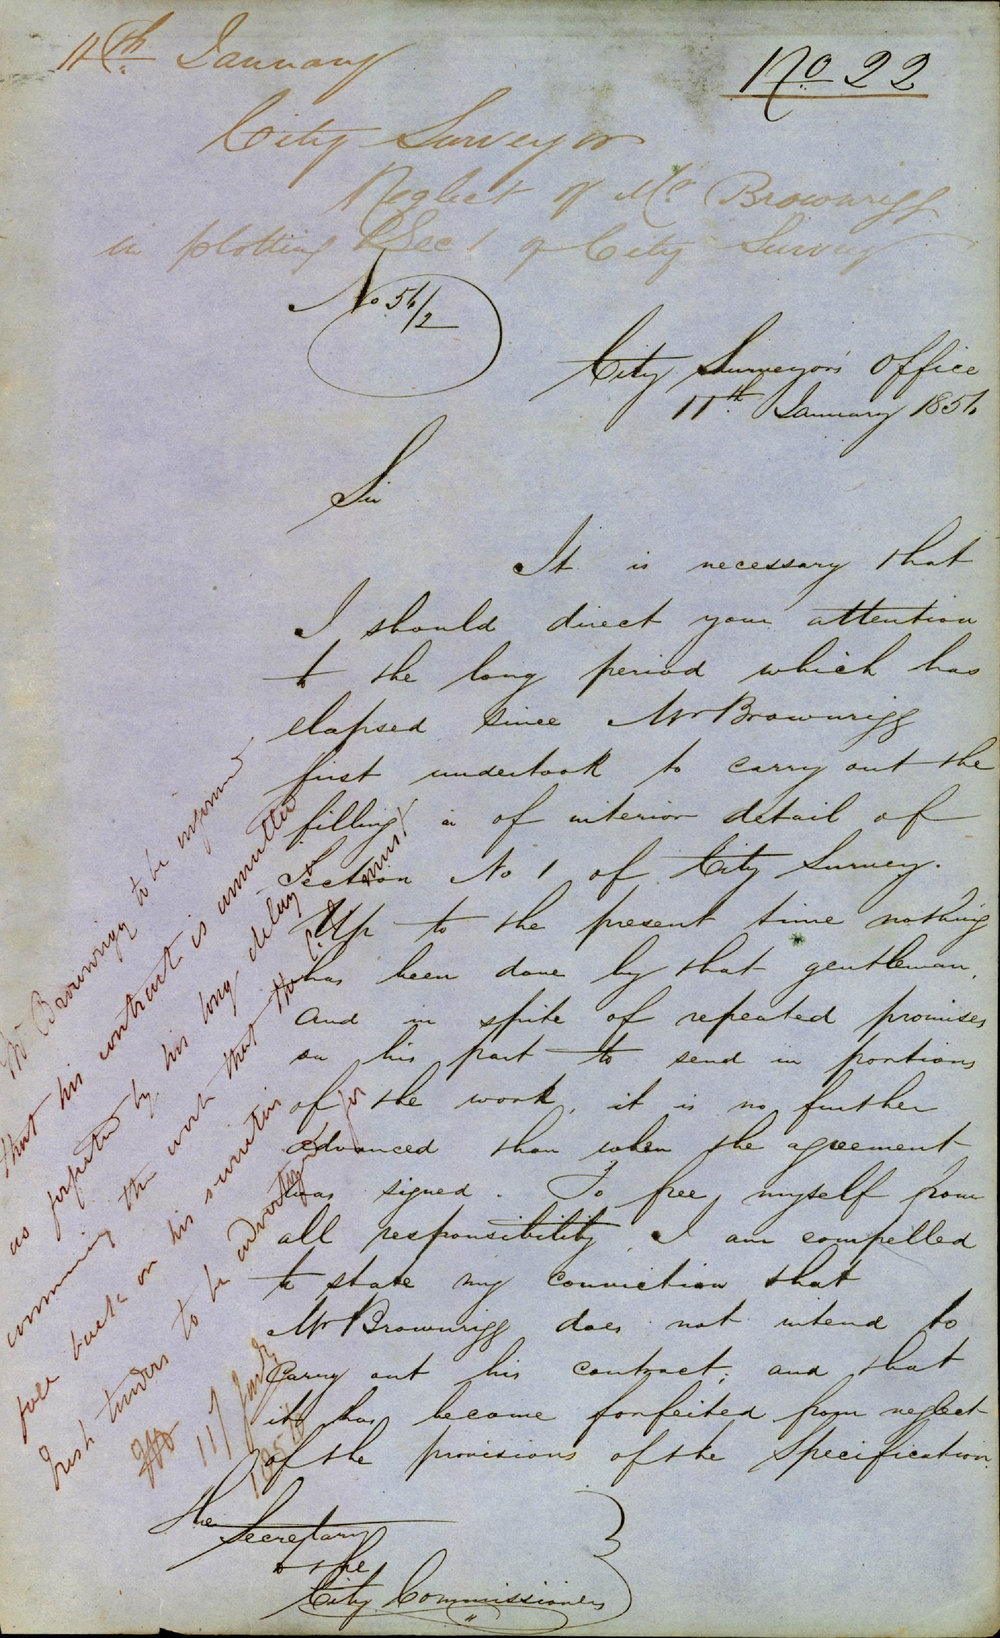 11th January
No 22
City Surveyor
Neglect of Mr Brownrigg
in plotting Sec 1 of City Survey
No 56/2
City Surveyor's Office
11th January 1856
Sir
It is necessary that
I should direct your attention
to the long period which has
elapsed since Mr Brownrigg
first undertook to carry out the
filling in of interior detail of
Section No 1 of City Survey.
Up to the present time nothing
has been done by that gentleman,
and in spite of repeated promises
on his part to send in portions
of the work, it is no further
advanced than when the agreement
was signed. To free myself from
all responsibility, I am compelled
to state my conviction that
Mr Brownrigg does not intend to
carry out his contract; and that
it has become forfeited from neglect
of the provisions of the Specification.
The Secretary
to the
City Commissioners
Mr Brownrigg to be informed
that his contract is cancelled
as forfeited by his long delay in
commencing the work that the must
fall back on his sureties
fresh tenders to be advertized for
11/Jany
1856